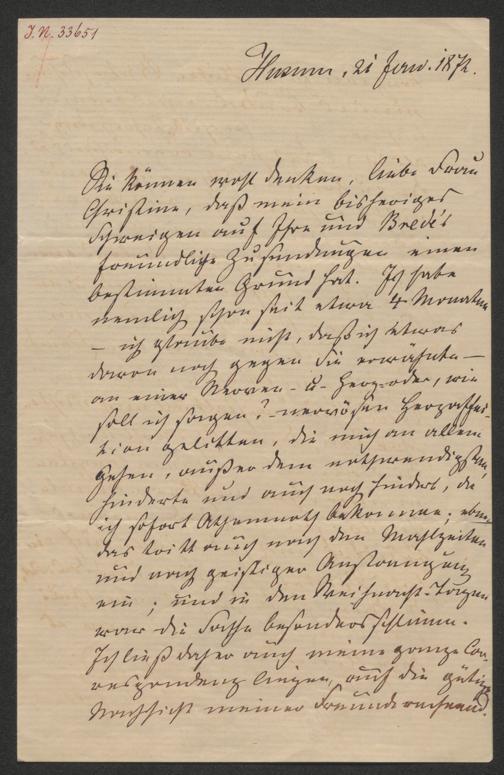 J.N. 33651
Husum, 21 Jan. 1872.
Sie können wohl denken, liebe Frau
Christine, daß mein bisheriges
Schweigen auf Ihre und Brede's
freundliche Zusendungen einen
bestimmten Grund hat. Ich habe
nemlich schon seit etwa 4 Monaten
— ich glaube nicht, daß ich etwas
davon noch gegen Sie erwähnte —
an einer Nerven- u- Herz- oder, wie
soll ich sagen? nervösen Herzaffec-
tion gelitten, die mich an allem
Gehen, außer dem nothwendigsten,
hinderte und auch noch hindert, da
ich sofort Athemnoth bekomme; eben
das tritt auch nach den Mahlzeiten
und nach geistiger Anstrengung
ein; und in den Weihnachts-Tagen
war die Sache besonders schlimm.
Ich ließ daher auch meine ganze Cor-
respondenz liegen, auf die gütige
Nachsicht meiner Freunde rechnend.